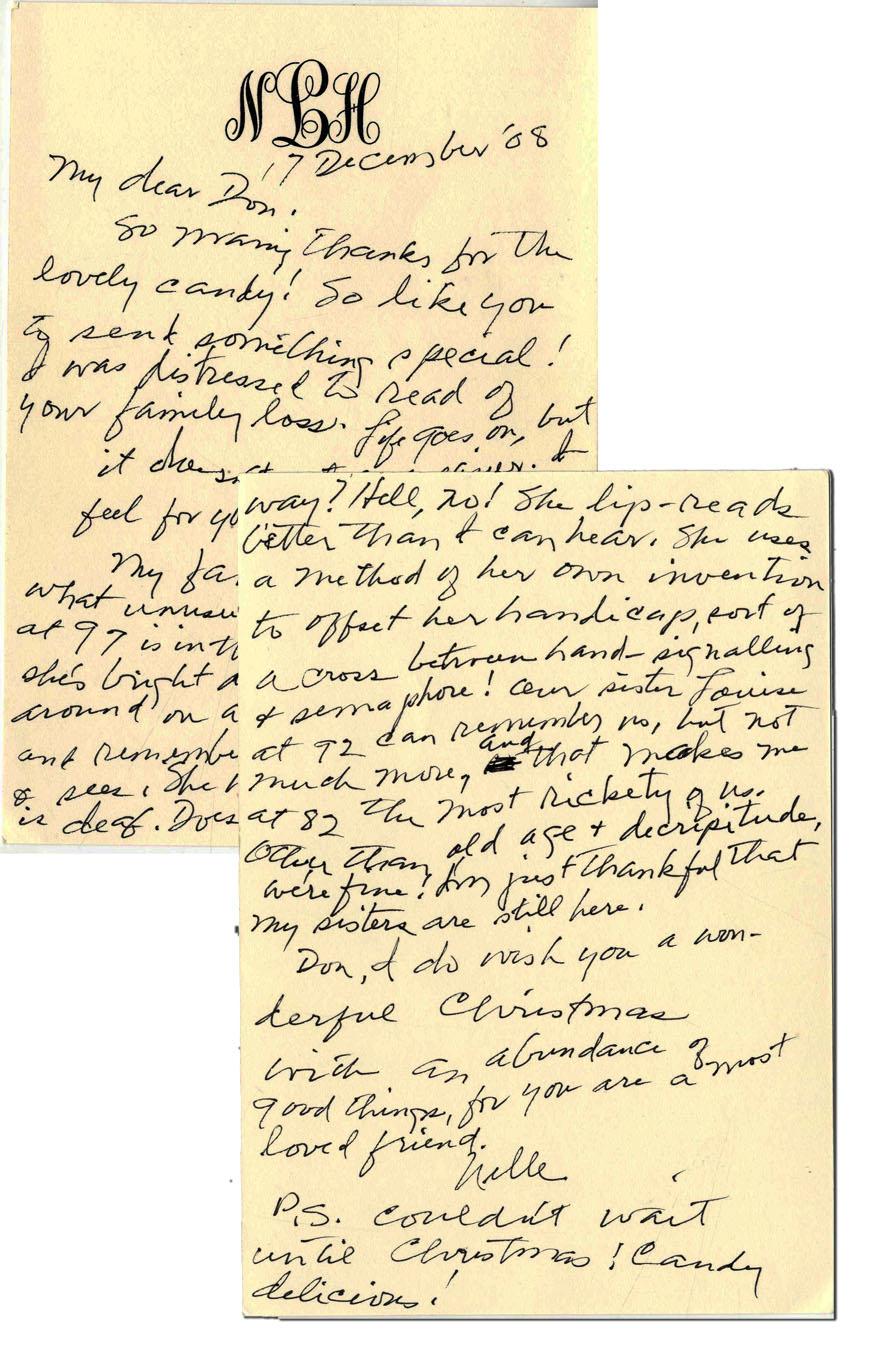 NLH
17 December '08
My dear Don:
So many thanks for the
lovely candy! So like you
to send something special!
I was distressed to read of
your family loss. Life goes on, but
it does
easier. I
feel for yo
My fa
what unusu
at 97 is in th
she's bright a
around on a
and remembe
& sees. She
is deaf. Does
way? Hell, no! She lip-reads
better than I can hear. She uses
a method of her own invention
to offset her handicap, sort of
a cross between hand-signalling
& semaphore! Our sister Louise
at 92 can remember us, but not
much more, and that makes me
at 82 the most rickety of us.
Other than old age & decripitude,
we're fine! I'm just thankful that
my sisters are still here.
Don, I do wish you a won-
derful Christmas
with an abundance of
good things, for you are a most
loved friend.
Nelle
P.S. couldn't wait
until Christmas! Candy
delicious!